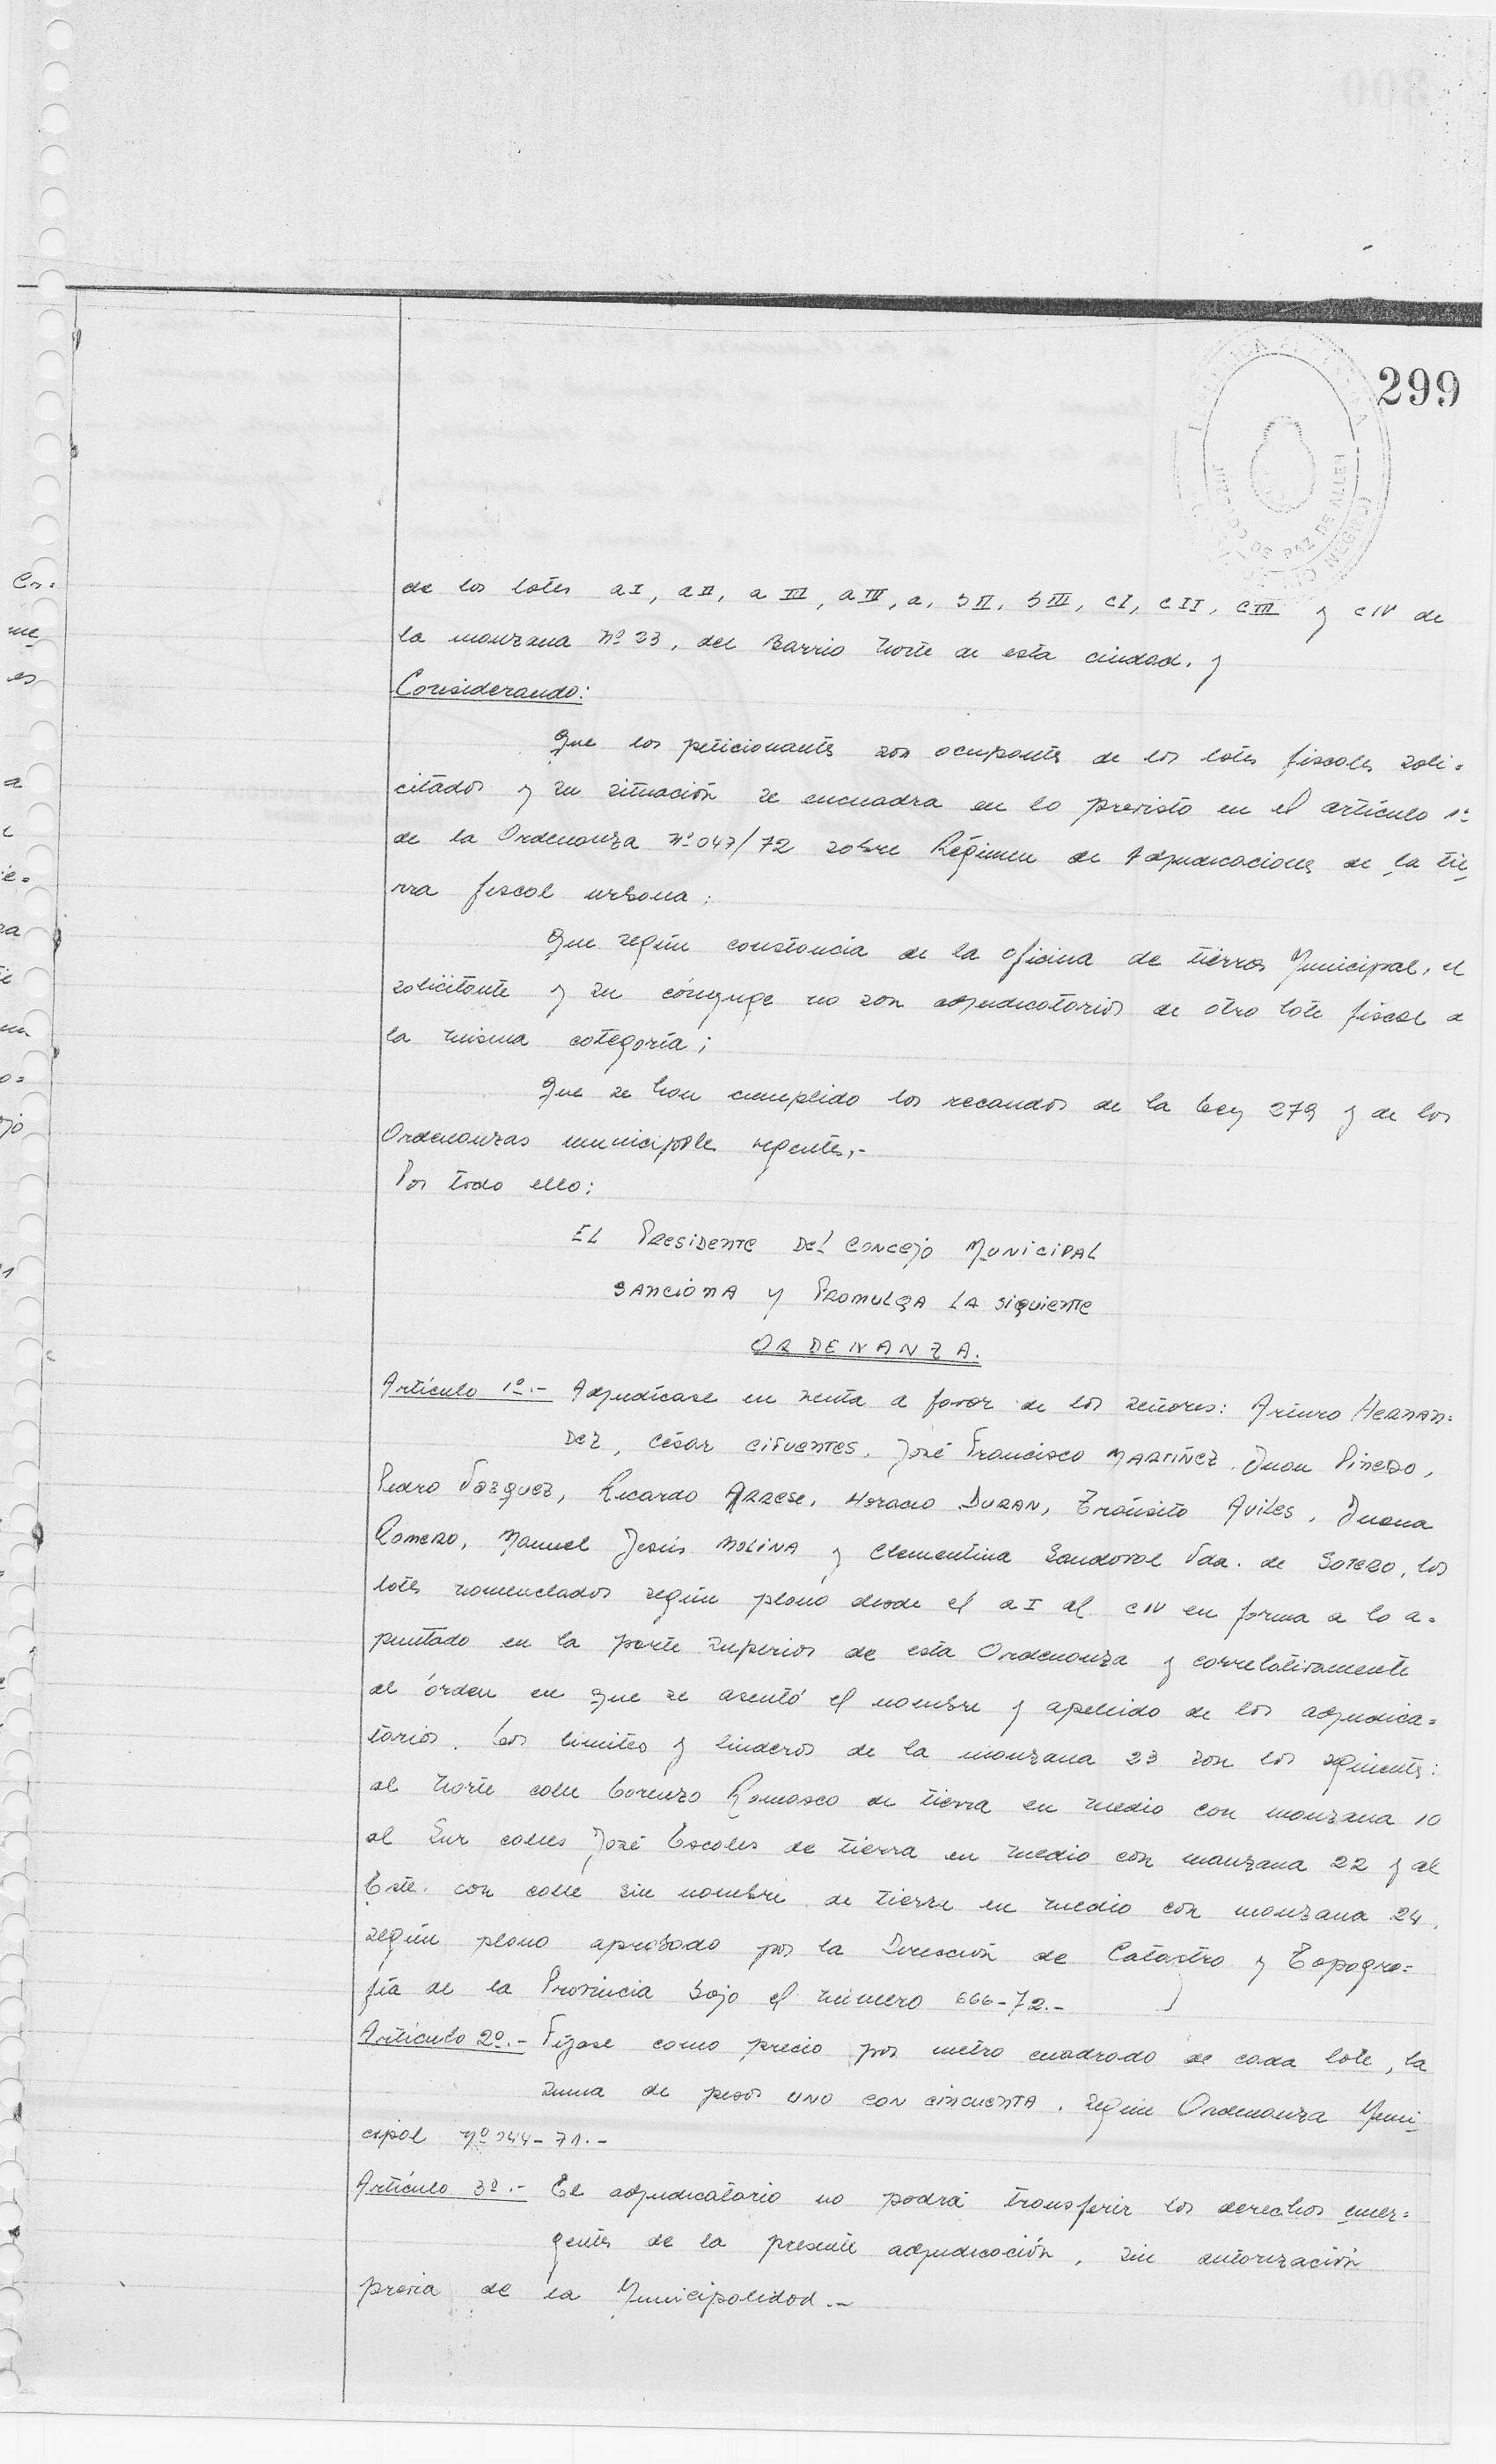 299
de los lotes aI, aII, a III, aIV, a, bII, bIII, cI, cII, cIII y cIV de
la manzana Nº 23, del Barrio Norte de esta ciudad, y
Considerando:
Que los peticionantes son ocupantes de los lotes fiscales soli=
citados y su situación se encuadra en lo previsto en el artículo 1º
de la Ordenanza Nº 047/72 sobre Régimen de Adjudicaciones de la tie
rra fiscal urbana;
Que según constancia de la Oficina de tierras Municipal, el
solicitante y su cónyuge no son adjudicatarios de otro lote fiscal a
la misma categoría;
Que se han cumplido los recaudos de la Ley 279 y de los
Ordenanzas municipales vigentes.-
Por todo ello:
EL PRESIDENTE DEL CONCEJO MUNICIPAL
SANCIONA Y PROMULGA LA SIGUIENTE
ORDENANZA.
Artículo 1º.- Adjudícase en venta a favor de los señores: Arturo HERNAN=
DEZ, César CIFUENTES, José Francisco MARTIÑEZ, Juan PIÑERO,
Pedro Vazquez, Ricardo ARRESE, Horacio DURAN, Tránsito Aviles, Juana
ROMERO, Manuel Jesús MOLINA y Clementina Sandoval Vda. de SOTERO, los
lotes nomenclados según plano desde el aI al cIV en forma a lo a=
puntado en la parte superior de esta Ordenanza y correlativamente
al órden en que se asentó el nombre y apellido de los adjudica=
tarios. Los limites y linderos de la manzana 23 son los siguientes:
al Norte calle Lorenzo Ramasco de tierra en medio con manzana 10
al Sur calles José Escales de tierra en medio con manzana 22 y al
Este. con calle sin nombre de tierra en medio con manzana 24,
según plano aprobado por la Dirección de Catastro y Topogra=
fía de la Provincia bajo el número 666-72.-
Artículo 2º.- Fíjase como precio por metro cuadrado de cada lote, la
suma de pesos UNO CON CINCUENTA, según Ordenanza Muni
cipal Nº 044-71.-
Artículo 3º.- El adjudicatario no podrá transferir los derechos emer=
gentes de la presente adjudicación, sin autorización
previa de la Municipalidad.-